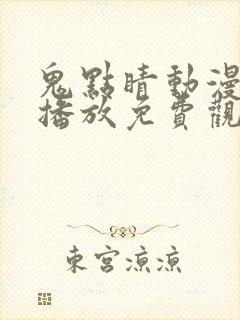 鬼點睛動漫
播放免費觀
東宮涼涼